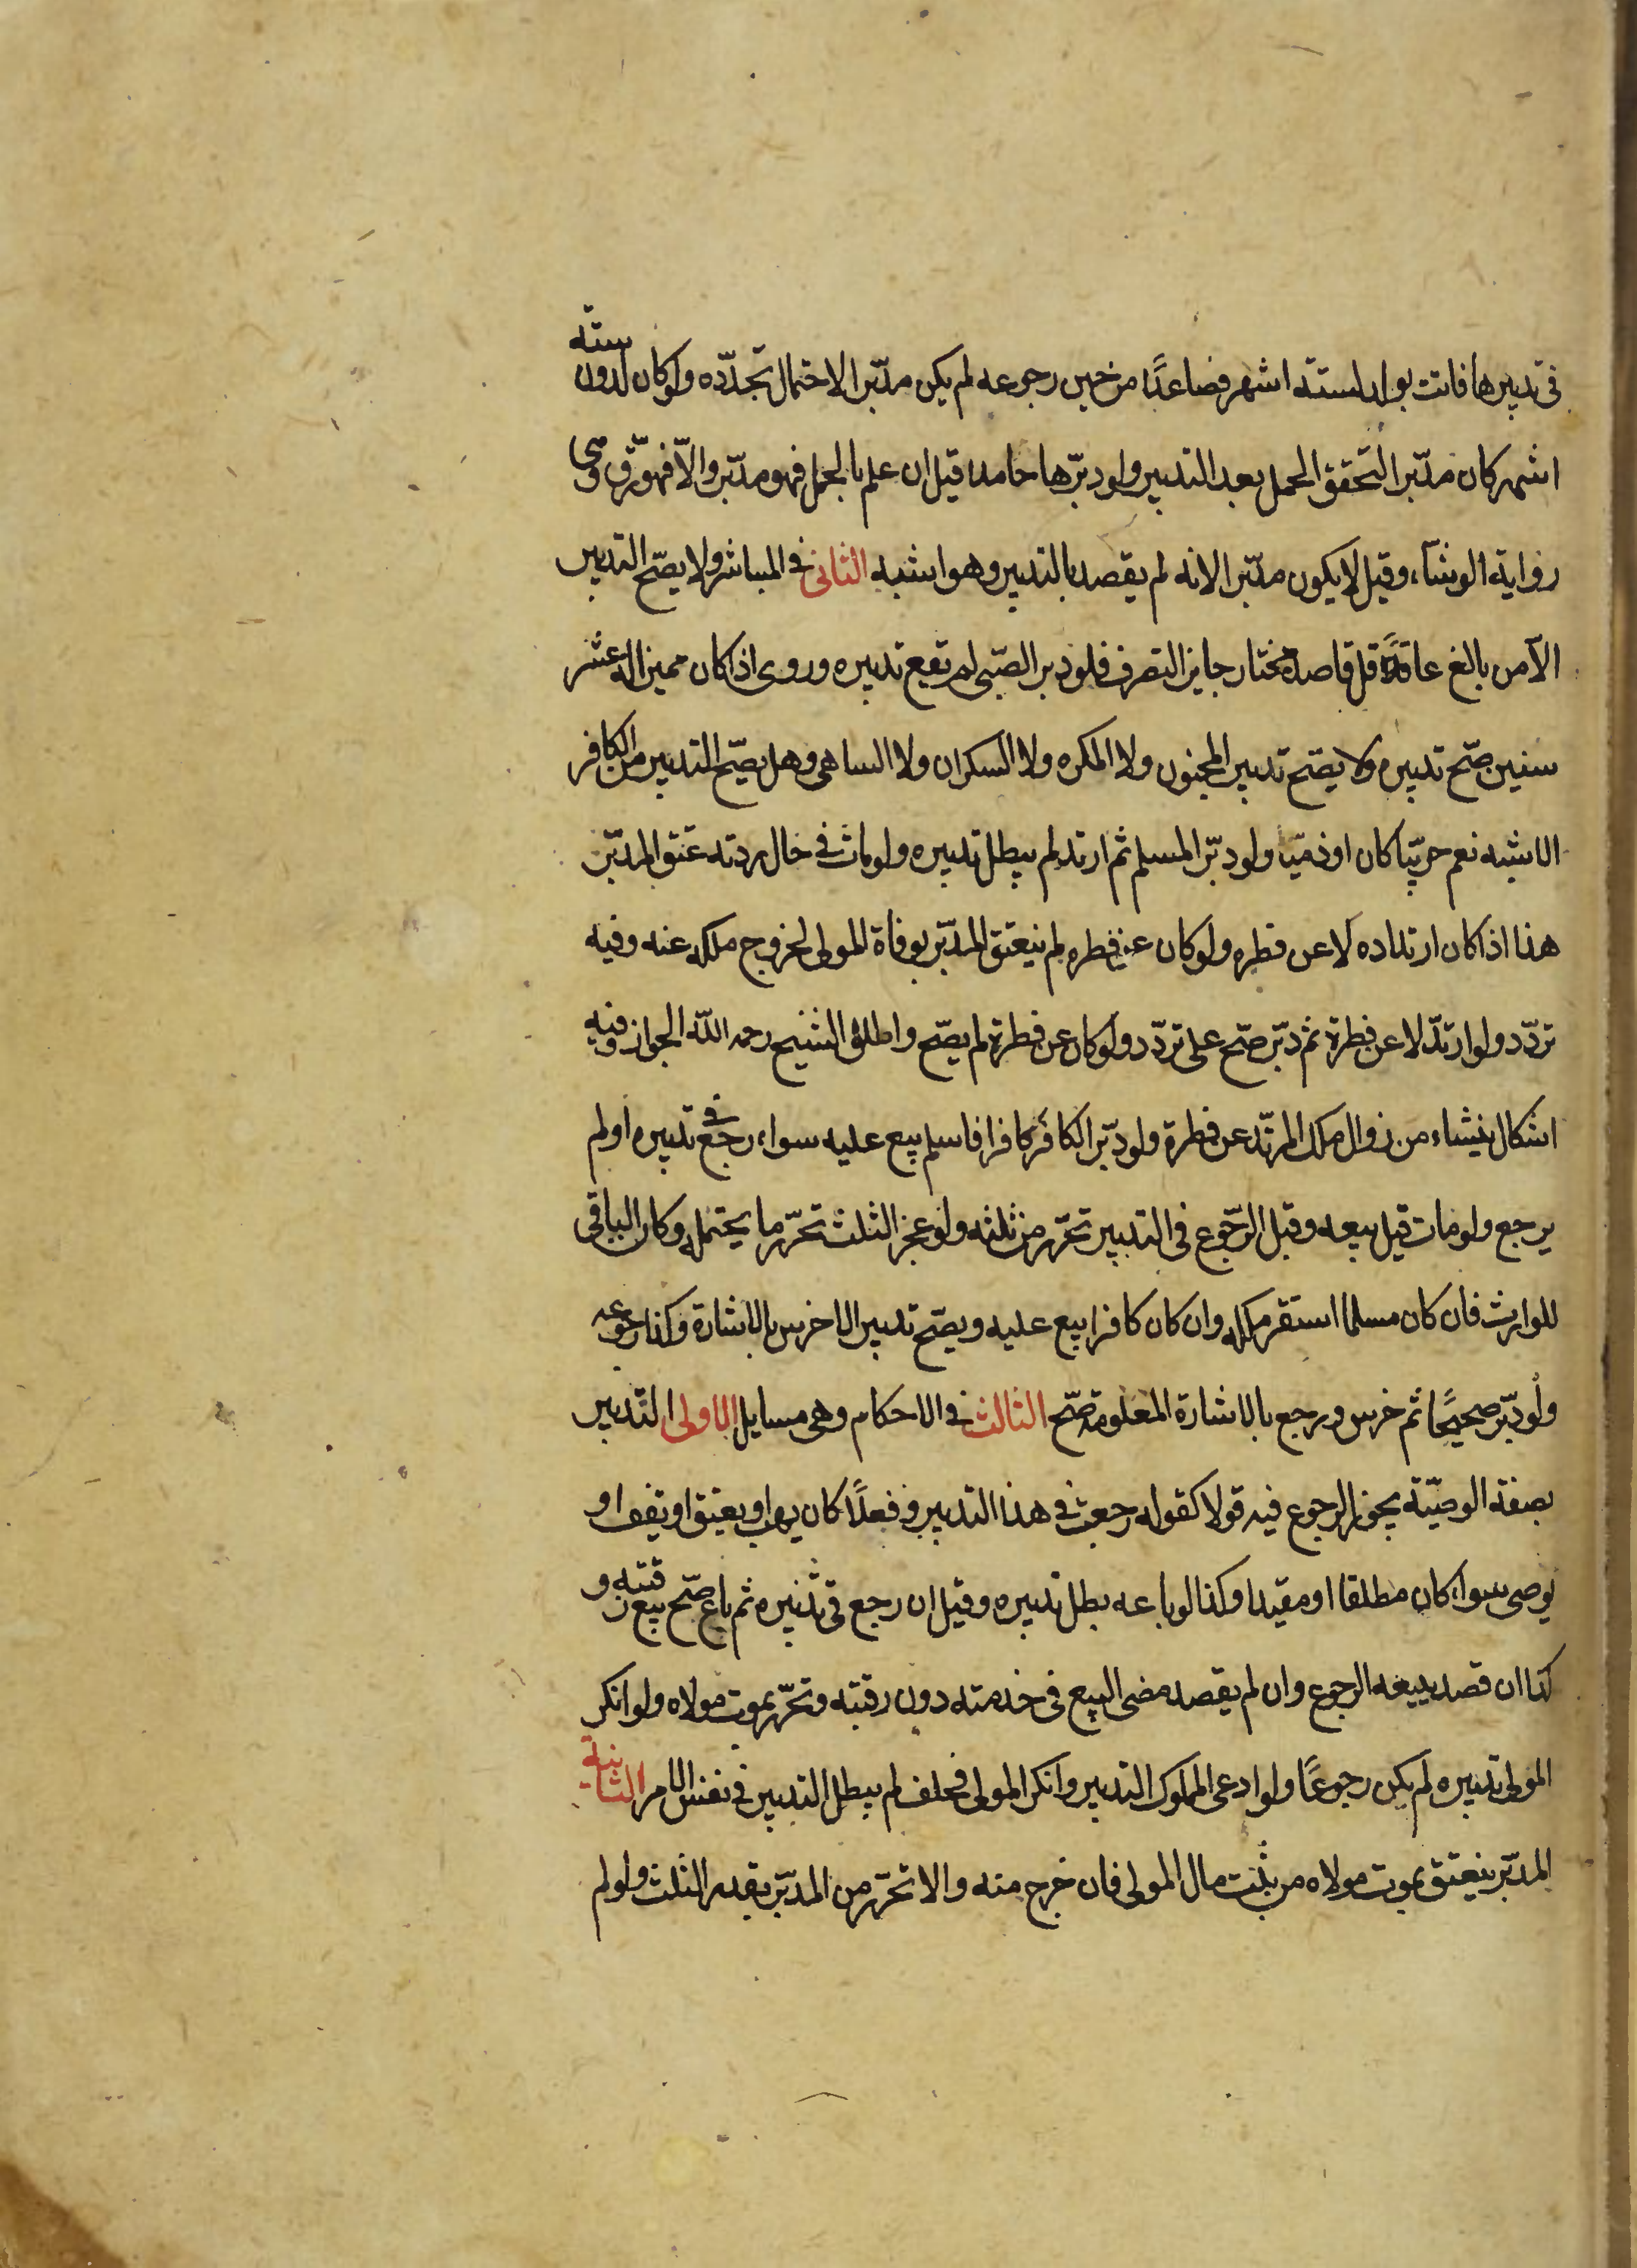 في تدبيرها فاتت بولد لستة اشهر فصاعدًا من حين رجوعه لم يكن مدبّرا لاحتمال تجدّده ولو كان لدون ستة
اشهر كان مدبّرا لتحقق الحمل بعد التدبير ولو دبّرها حاملا قيل ان علم بالحمل فهو مدبّر والّا فهو رقّ وهي
رواية الوشآء وقيل لا يكون مدبّرا لانه لم يقصد بالتدبير وهو اشبه الثاني في المباشر ولا يصحّ التدبير
الّا من بالغ عاقل قاصد مختار جايز التصرف فلو دبر الصّبي لم تقع تدبيره وروى اذا كان مميزا له عشر
سنين صّح تدبيره ولا يصّح تدبير المجنون ولا المكره ولا السكران ولا الساهي وهل يصّح التدبير من الكافر
الاشبه نعم حربّيا كان او ذميّا ولو دبّر المسلم ثم ارتد لم يبطل تدبيره ولو مات في حال ردته عتق المدبّر
هذا اذا كان ارتداده لا عن فطره ولو كان عن فطره لم ينعتق المدبّر بوفاة المولى لخروج ملكه عنه وفيه
تردّد ولو ارتدّ لا عن فطرة ثم دبّر صّح على تردّد ولو كان عن فطرة لم يصّح واطلق الشيخ رحمه الله الجواز وفيه
اشكال ينشاء من زوال ملك المرتد عن فطرة ولو دبّر الكافر كافرا فاسلم بيع عليه سواء رجع في تدبيره او لم
يرجع ولو مات قبل بيعه وقبل الرّجوع في التدبير تحرّر من ثلثه ولو عجز الثلث تحرّر ما يحتمله وكان الباقي
للوارث فان كان مسلما استقر ملكه وان كان كافرا بيع عليه ويصّح تدبير الاخرس بالاشارة وكذا رجوعه
ولو دبّر صحيحًا ثم خرس ورجع بالاشارة المعلومة صّح الثالث في الاحكام وهي مسايل الاولى التّدبير
بصفة الوصيّة يجوز الرجوع فيه قولا كقوله رجعت في هذا التدبير وفعلًا كان يهب او يعتق او يقف او
يوصي سواء كان مطلقا او مقيدا وكذا لو باعه بطل تدبيره وقيل ان رجع في تدبيره ثم باع صّح بيع رقبته و
كذا ان قصد ببيعه الرجوع وان لم يقصد مضى البيع في خدمته دون رقبته وتحرّر بموت مولاه ولو انكر
المولى تدبيره لم يكن رجوعًا ولو ادعى المملوك التدبير وانكر المولى فحلف لم يبطل التدبير في نفس الامر الثانية
المدبّر ينعتق بموت مولاه من ثلث مال المولى فان خرج منه والا تحرّر من المدبّر بقدر الثلث ولو لم